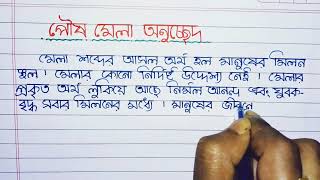 পৌষ মেলা অনুচ্ছেদ
মেলা শব্দের আসল অর্থ হল মানুষের মিলন
স্থল। মেলার কোনো নির্দিষ্ট উদ্দেশ্য নেই। মেলার
প্রকৃত অর্থ লুকিয়ে আছে নির্মল আনন্দ এবং যুবক-
বৃদ্ধ সবার মিলনের মধ্যে। মানুষের জীবনে